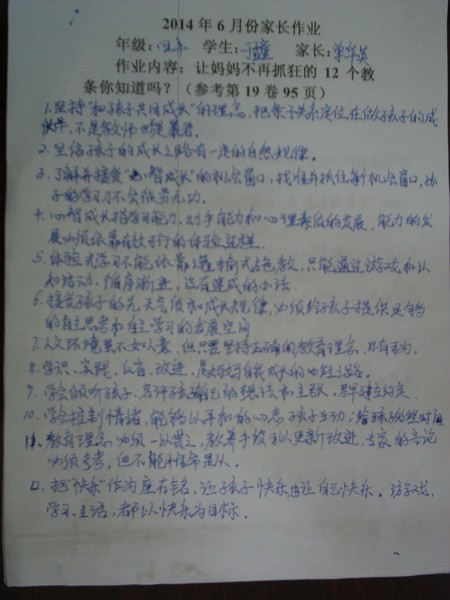 2014 年 6 月份家长作业
年级：四年 学生：于童 家长：单华英
作业内容：让妈妈不再抓狂的 12 个教
条你知道吗？（参考第 19 卷 95 页）
1. 坚持“和孩子共同成长”的理念，把亲子关系定位在做孩子的成长
伙伴，不是教师也是暴君。
2. 坚信孩子的成长之路有一定的自然规律。
3. 了解并接受“心智成长”的机会窗口，找准并抓住新机会窗口，孩
子的学习不会徒劳无功。
4. 心智成长指学习能力、动手能力和心理素质的发展，能力的发
展必须依靠有效可行的体验过程。
5. 体验式学习不能依靠灌输式说教，只能通过游戏和认
知活动，循序渐进，没有速成的办法
6. 接受孩子的先天气质和成长规律，必须给孩子提供足够
的自主思考和自主学习的发展空间
7. 人文环境虽不如人意，但只要坚持正确的教育理念，
8. 学识、实践、反省、改进，是父母自我成长的必经之路。
9. 学会倾听孩子，容许孩子自己的想法和主张，尽早建立约定
10. 学会控制情绪，能够以平和的心态孩子互动；给孩子
11. 教育理念必须一以贯之，教养手段可以更新改进，专家的言论
必须参考，但不能惟命是从。
12. 把“快乐”作为座右铭，让孩子快乐也让自己快乐。游戏、
学习、生活，都以快乐为目标。